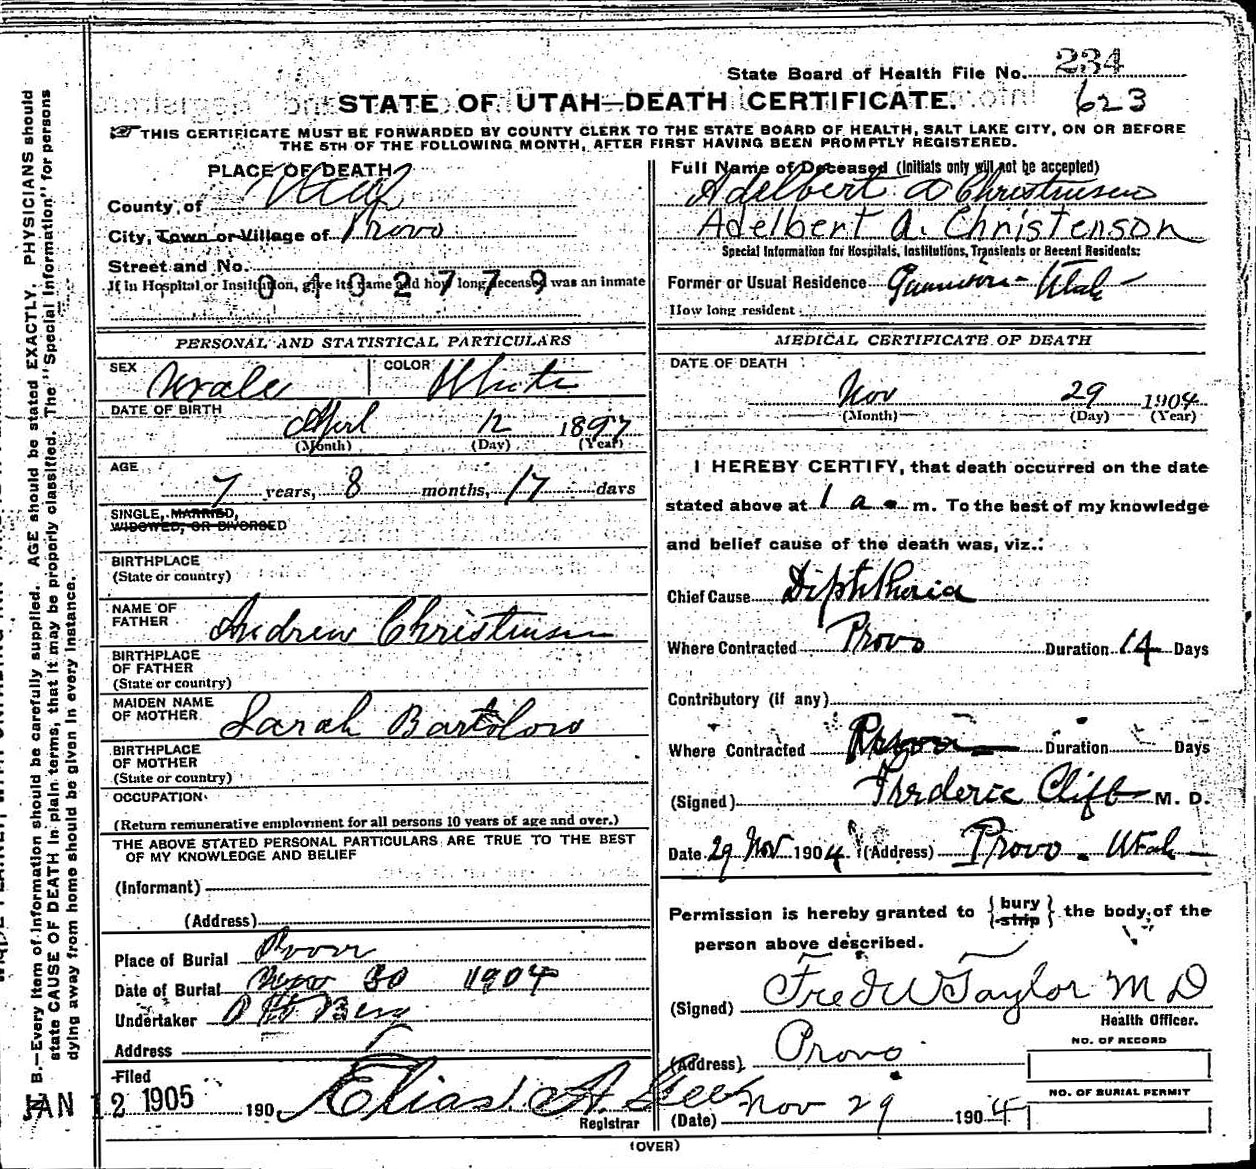 State Board of Health File No. 234
623
STATE OF UTAH—DEATH CERTIFICATE.
THIS CERTIFICATE MUST BE FORWARDED BY COUNTY CLERK TO THE STATE BOARD OF HEALTH, SALT LAKE CITY, ON OR BEFORE
THE 5TH OF THE FOLLOWING MONTH, AFTER FIRST HAVING BEEN PROMPTLY REGISTERED.
PLACE OF DEATH
County of Utah
City, Town or Village of Provo
Street and No.
If in Hospital or Institution, give its name and how long deceased was an inmate
0 1 9 2 7 7 9
Full Name of Deceased (Initials only will not be accepted)
Adelbert A Christensen
Adelbert A. Christenson
Special Information for Hospitals, Institutions, Transients or Recent Residents:
Former or Usual Residence Gunnison - Utah
How long resident
PERSONAL AND STATISTICAL PARTICULARS
SEX Male COLOR White
DATE OF BIRTH
April 12 1897
(Month) (Day) (Year)
AGE
7 years, 8 months, 17 days
SINGLE, MARRIED,
WIDOWED, OR DIVORCED
BIRTHPLACE
(State or country)
NAME OF
FATHER Andrew Christensen
BIRTHPLACE
OF FATHER
(State or country)
MAIDEN NAME
OF MOTHER Sarah Bartolow
BIRTHPLACE
OF MOTHER
(State or country)
OCCUPATION
(Return remunerative employment for all persons 10 years of age and over.)
THE ABOVE STATED PERSONAL PARTICULARS ARE TRUE TO THE BEST
OF MY KNOWLEDGE AND BELIEF
(Informant)
(Address)
Place of Burial Provo
Date of Burial Nov 30 1904
Undertaker O H Berg
Address
Filed
JAN 12 1905 190
Elias A. Gee
Registrar
MEDICAL CERTIFICATE OF DEATH
DATE OF DEATH
Nov 29 1904
(Month) (Day) (Year)
I HEREBY CERTIFY, that death occurred on the date
stated above at 1 a. m. To the best of my knowledge
and belief cause of the death was, viz.:
Chief Cause Diphtheria
Where Contracted Provo Duration 14 Days
Contributory (if any)
Where Contracted Provo Duration Days
(Signed) Frederic Clift M. D.
Date 29 Nov 1904 (Address) Provo. Utah
Permission is hereby granted to { bury
ship } the body of the
person above described.
(Signed) Fred W Taylor M D
Health Officer.
(Address) Provo
NO. OF RECORD
NO. OF BURIAL PERMIT
(Date) Nov 29 1904
(OVER)
N. B.—Every item of information should be carefully supplied. AGE should be stated EXACTLY. PHYSICIANS should
state CAUSE OF DEATH in plain terms, that it may be properly classified. The "Special Information" for persons
dying away from home should be given in every instance.